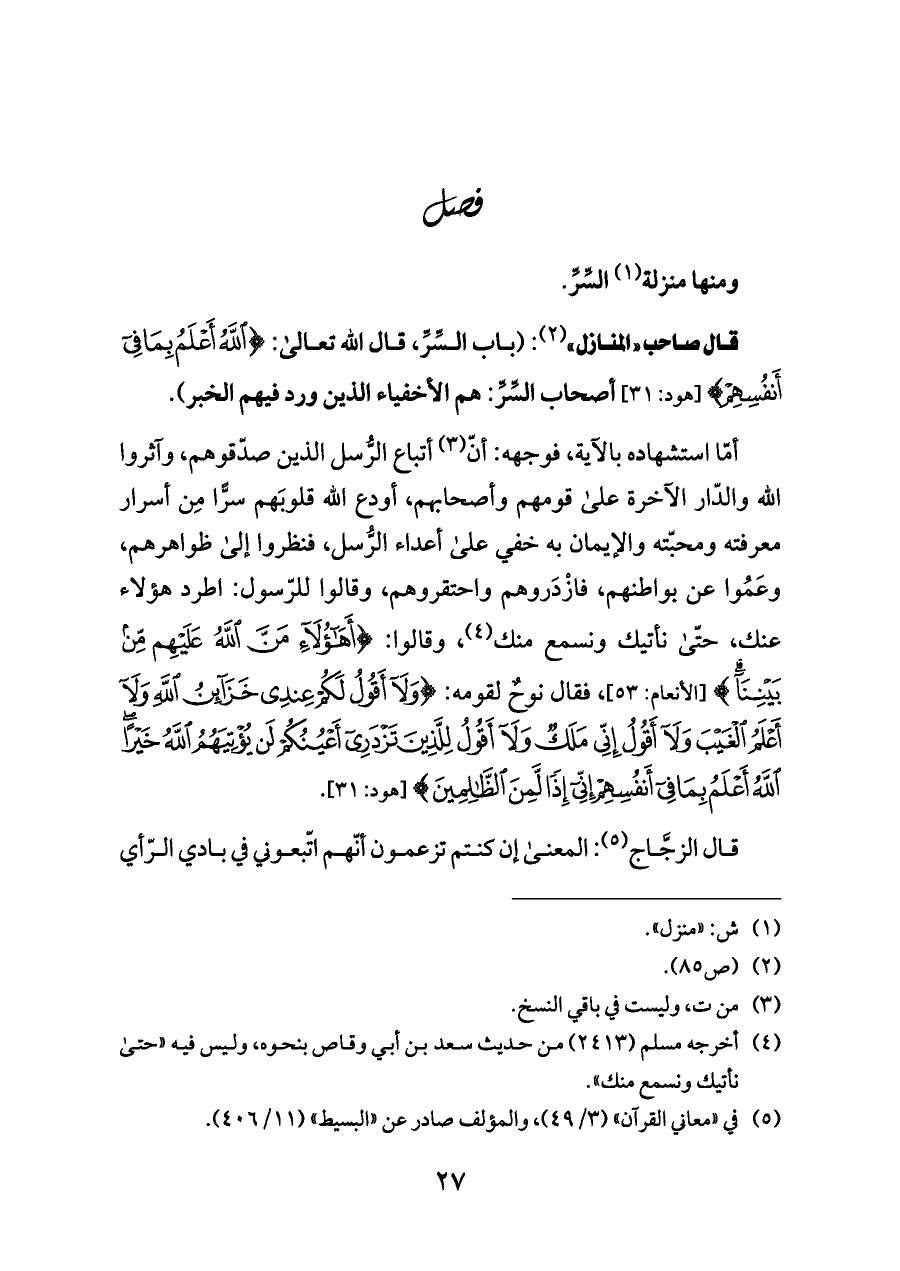 فصل
ومنها منزلة(١) السِّرِّ.
قال صاحب «المنازل»(٢): (باب السِّرِّ، قال الله تعالىٰ: ﴿ٱللَّهُ أَعْلَمُ بِمَا فِىٓ
أَنفُسِهِمْ﴾ [هود: ٣١] أصحاب السِّرِّ: هم الأخفياء الذين ورد فيهم الخبر).
أمّا استشهاده بالآية، فوجهه: أنّ(٣) أتباع الرُّسل الذين صدّقوهم، وآثروا
الله والدّار الآخرة علىٰ قومهم وأصحابهم، أودع الله قلوبَهم سرًّا مِن أسرار
معرفته ومحبّته والإيمان به خفي علىٰ أعداء الرُّسل، فنظروا إلىٰ ظواهرهم،
وعَمُوا عن بواطنهم، فازْدَروهم واحتقروهم، وقالوا للرّسول: اطرد هؤلاء
عنك، حتّىٰ نأتيك ونسمع منك(٤)، وقالوا: ﴿أَهَٰٓؤُلَآءِ مَنَّ ٱللَّهُ عَلَيْهِم مِّنۢ
بَيْنِنَآۗ﴾ [الأنعام: ٥٣]، فقال نوحٌ لقومه: ﴿وَلَآ أَقُولُ لَكُمْ عِندِى خَزَآئِنُ ٱللَّهِ وَلَآ
أَعْلَمُ ٱلْغَيْبَ وَلَآ أَقُولُ إِنِّى مَلَكٌ وَلَآ أَقُولُ لِلَّذِينَ تَزْدَرِىٓ أَعْيُنُكُمْ لَن يُؤْتِيَهُمُ ٱللَّهُ خَيْرًاۖ
ٱللَّهُ أَعْلَمُ بِمَا فِىٓ أَنفُسِهِمْ إِنِّىٓ إِذًا لَّمِنَ ٱلظَّٰلِمِينَ﴾ [هود: ٣١].
قال الزجَّاج(٥): المعنىٰ إن كنتم تزعمون أنّهم اتّبعوني في بادي الرّأي
(١) ش: «منزل».
(٢) (ص٨٥).
(٣) من ت، وليست في باقي النسخ.
(٤) أخرجه مسلم (٢٤١٣) من حديث سعد بن أبي وقاص بنحوه، وليس فيه «حتىٰ
نأتيك ونسمع منك».
(٥) في «معاني القرآن» (٣/ ٤٩)، والمؤلف صادر عن «البسيط» (١١/ ٤٠٦).
٢٧